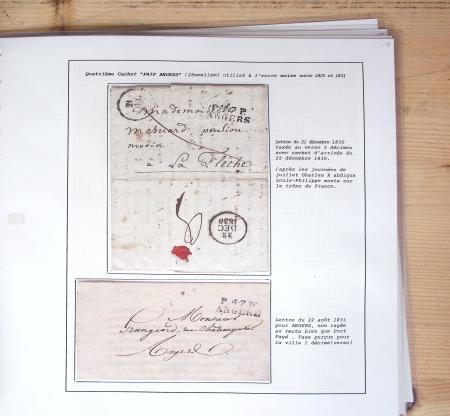 Quatrième Cachet "P47P ANGERS" (26mmx11mm) utilisé à l'encre noire entre 1825 et 1831
P.47.P.
ANGERS
Mademoiselle
à La Flèche
Lettre du 21 décembre 1830
taxée au verso 3 décimes
avec cachet d'arrivée du
22 décembre 1830.
(après les journées de
juillet Charles X abdiqua
Louis-Philippe monta sur
le trône de France.
22
DEC
1830
P.47.P.
ANGERS
Monsieur
Angers
Lettre du 22 août 1831
pour ANGERS, non rayée
au recto bien que Port
Payé . Taxe perçue pour
la ville 1 décime(verso)